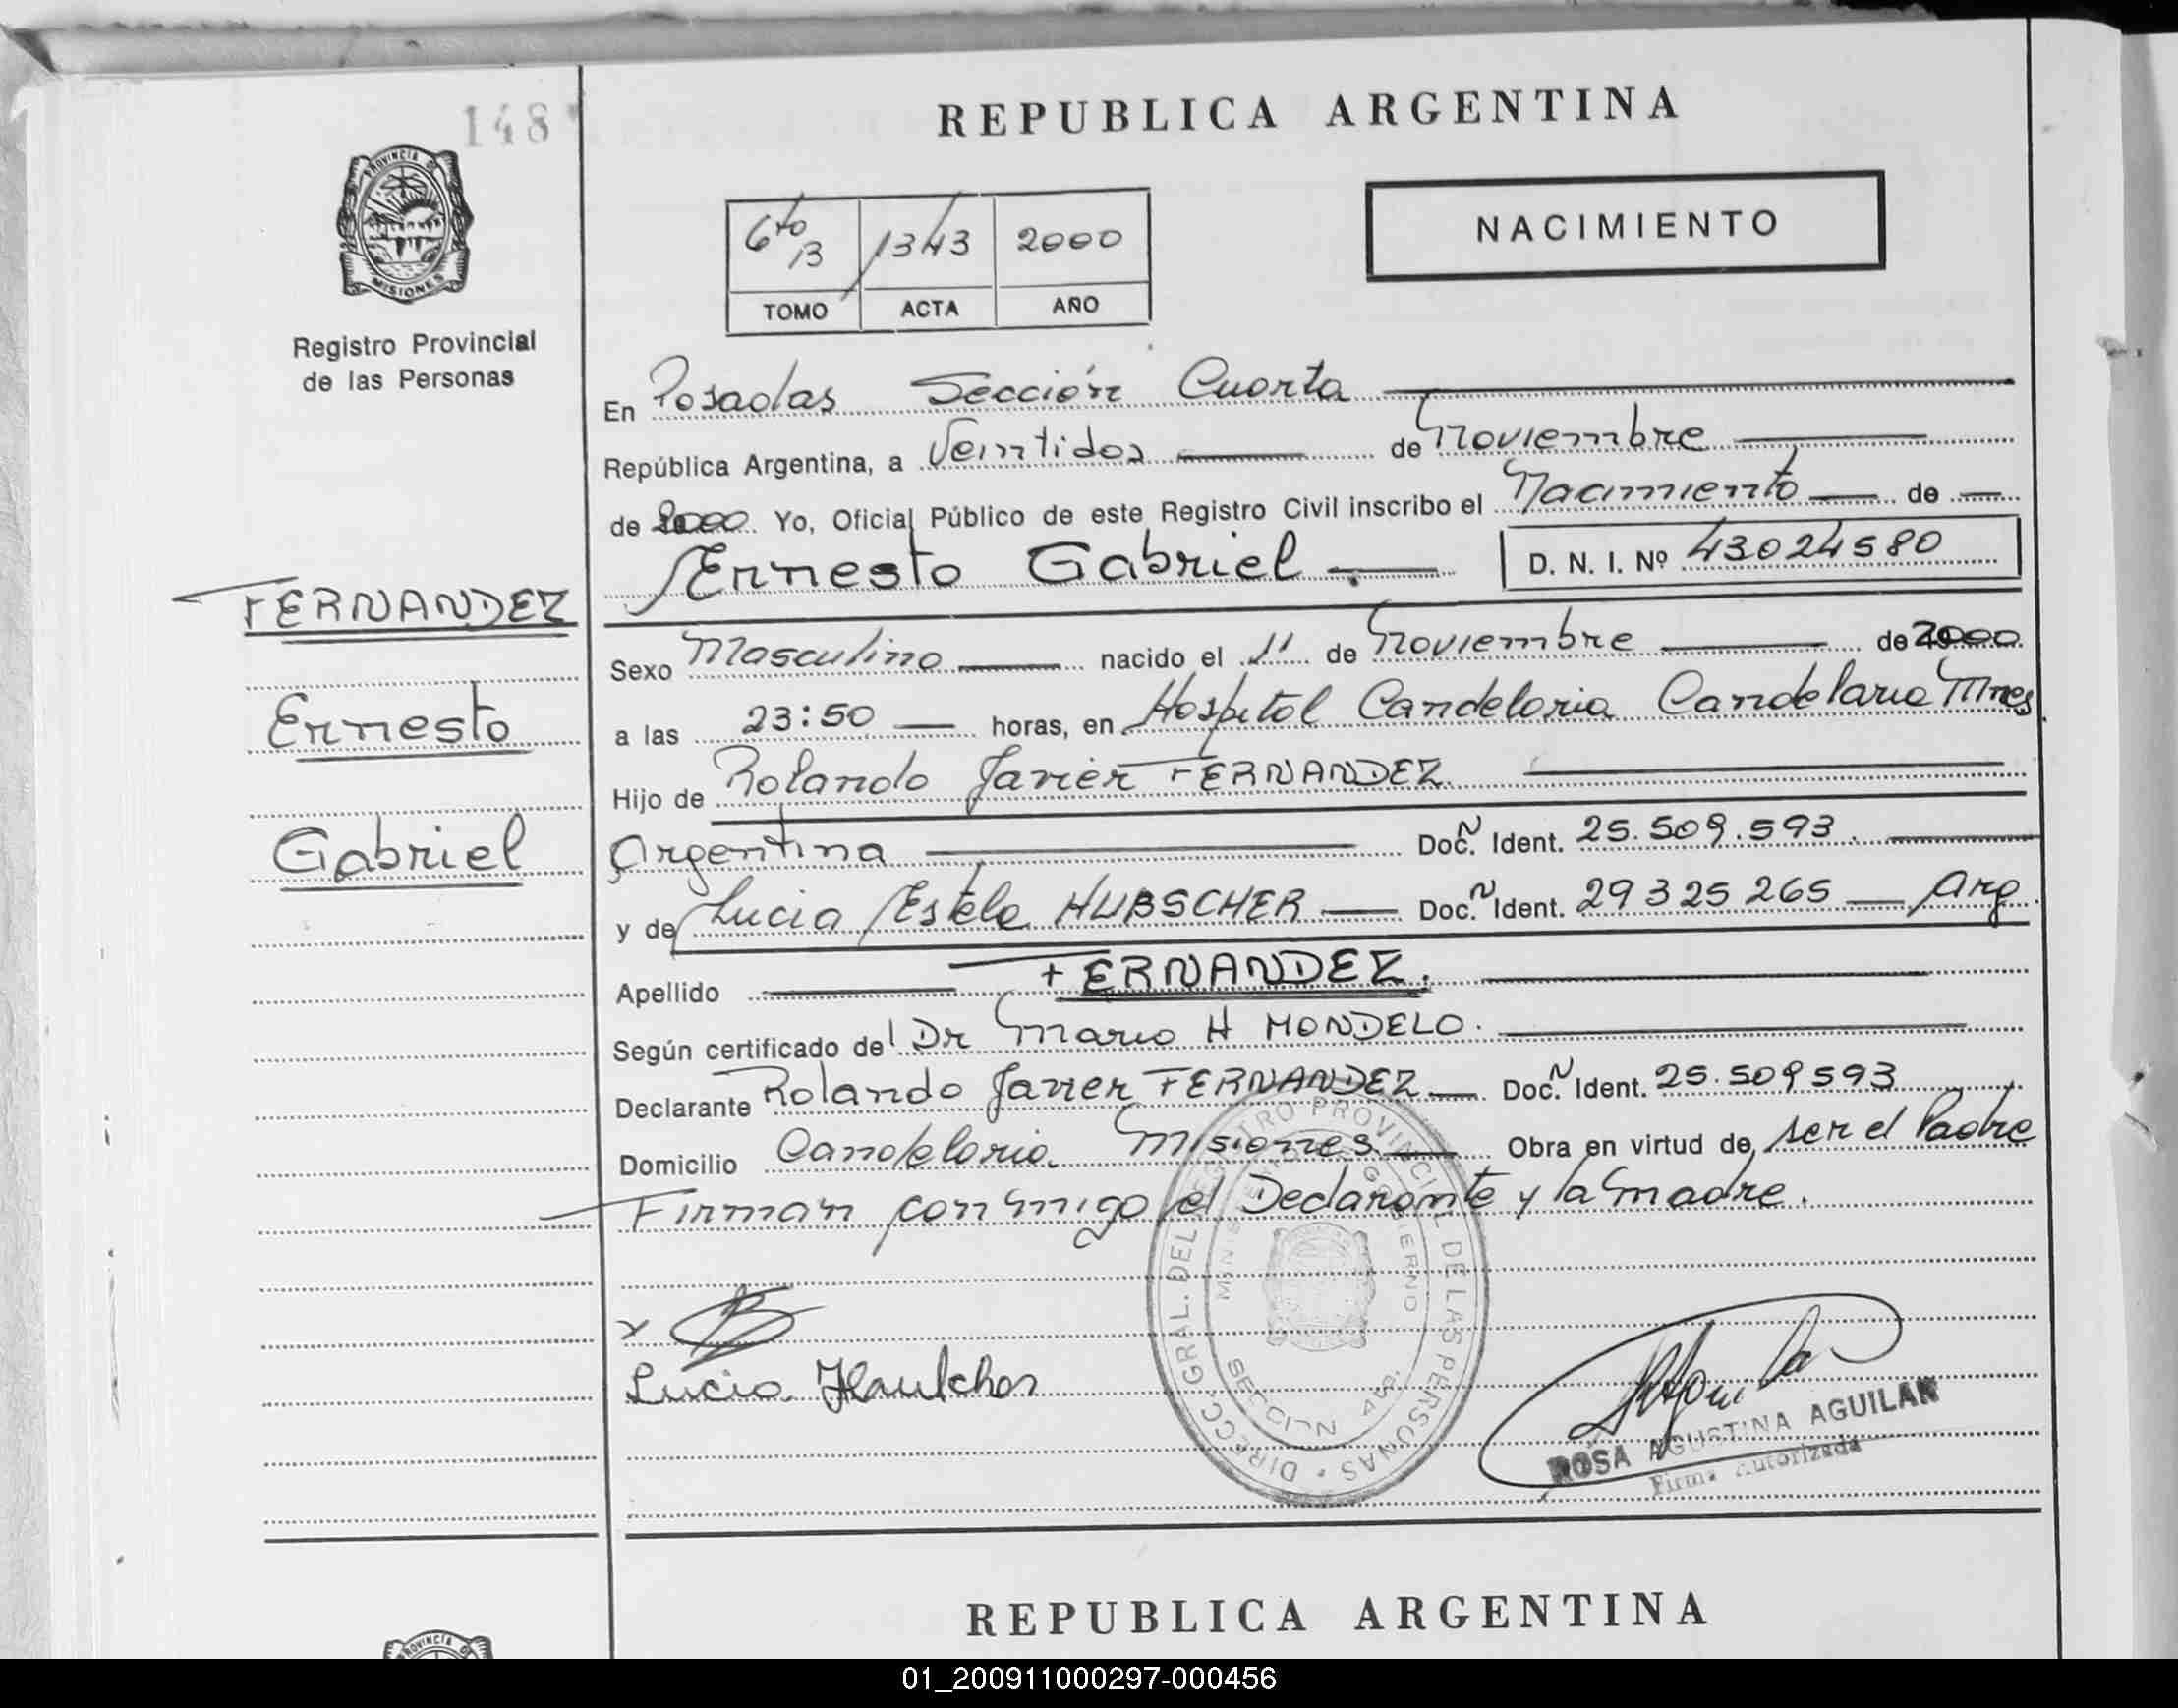 148
REPUBLICA ARGENTINA
PROVINCIA DE
MISIONES
Registro Provincial
de las Personas
6to B 1343 2000
TOMO ACTA AÑO
NACIMIENTO
En Posadas Sección Cuarta
República Argentina, a Veintidos de Noviembre
de 2000 Yo, Oficial Público de este Registro Civil inscribo el Nacimiento de
Ernesto Gabriel D. N. I. Nº 43024580
FERNANDEZ
Ernesto
Gabriel
Sexo Masculino nacido el 11 de Noviembre de 2000
a las 23:50 horas, en Hospital Candelaria Candelaria Mnes
Hijo de Rolando Javier FERNANDEZ
Argentina Doc. N Ident. 25.509.593.
y de Lucia Estela HUBSCHER Doc. N Ident. 29325265 Arg.
Apellido FERNANDEZ.
Según certificado del Dr Mario H MONDELO.
Declarante Rolando Javier FERNANDEZ Doc. N Ident. 25.509593
Domicilio Candelaria Misiones Obra en virtud de ser el Padre
Firman conmigo el Declarante y la madre.
x
Lucia
DIRECC. GRAL. DEL REGISTRO PROVINCIAL DE LAS PERSONAS
MINISTERIO GOBIERNO
SECCION 4ª
ROSA AGUSTINA AGUILAR
Firma Autorizada
REPUBLICA ARGENTINA
PROVINCIA
01_200911000297-000456